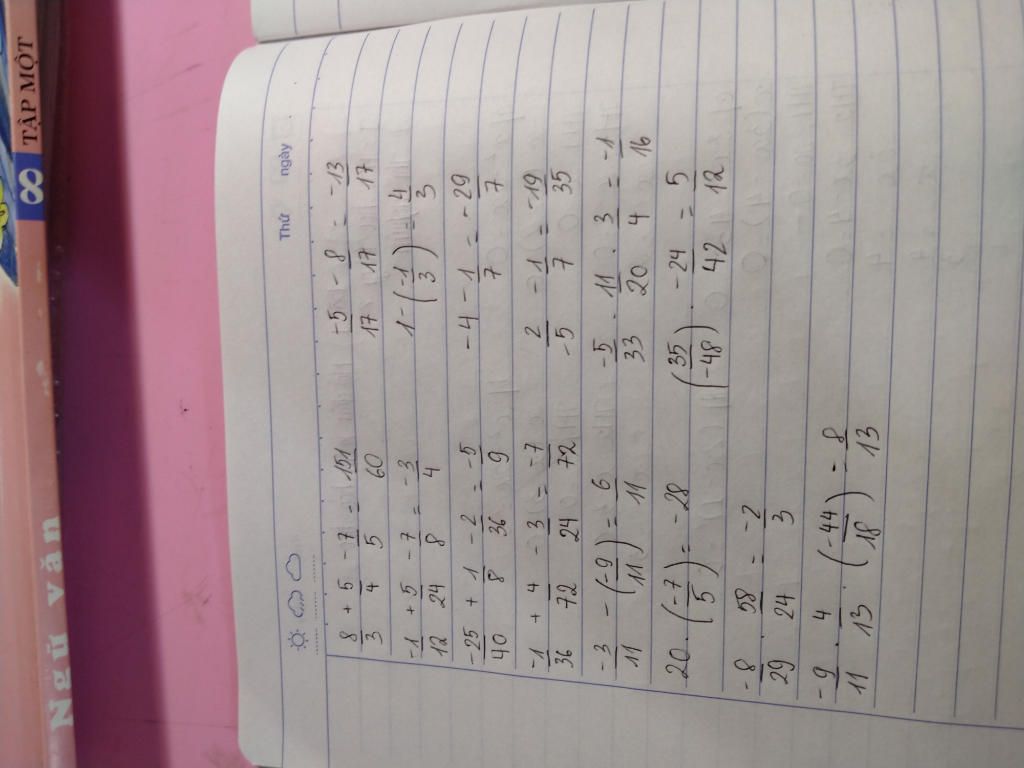 Thứ ngày
8/3 + 5/4 - 7/5 = 151/60 -5/17 - 8/17 = -13/17
-1/12 + 5/24 - 7/8 = -3/4 1 - (-1/3) = 4/3
-25/40 + 1/8 - 2/36 = -5/9 -4 - 1/7 = -29/7
-1/36 + 4/72 - 3/24 = -7/72 2/-5 - 1/7 = -19/35
-3/11 - (-9/11) = 6/11 -5/33 . 11/20 . 3/4 = -1/16
20 . (-7/5) = -28 (35/-48) . -24/42 = 5/12
-8/29 . 58/24 = -2/3
-9/11 . 4/13 . (-44/18) = 8/13
Ngữ văn
8 TẬP MỘT